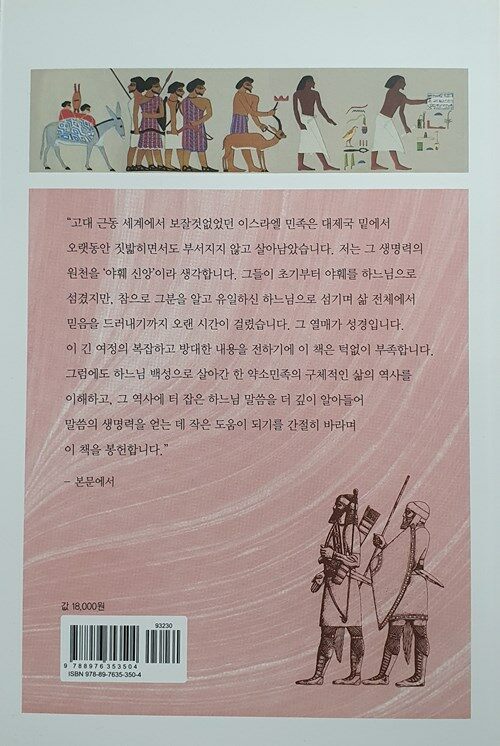 “고대 근동 세계에서 보잘것없었던 이스라엘 민족은 대제국 밑에서
오랫동안 짓밟히면서도 부서지지 않고 살아남았습니다. 저는 그 생명력의
원천을 ‘야훼 신앙’이라 생각합니다. 그들이 초기부터 야훼를 하느님으로
섬겼지만, 참으로 그분을 알고 유일하신 하느님으로 섬기며 삶 전체에서
믿음을 드러내기까지 오랜 시간이 걸렸습니다. 그 열매가 성경입니다.
이 긴 여정의 복잡하고 방대한 내용을 전하기에 이 책은 턱없이 부족합니다.
그럼에도 하느님 백성으로 살아간 한 약소민족의 구체적인 삶의 역사를
이해하고, 그 역사에 터 잡은 하느님 말씀을 더 깊이 알아들어
말씀의 생명력을 얻는 데 작은 도움이 되기를 간절히 바라며
이 책을 봉헌합니다.”
– 본문에서
값 18,000원
93230
9 788976 353504
ISBN 978-89-7635-350-4